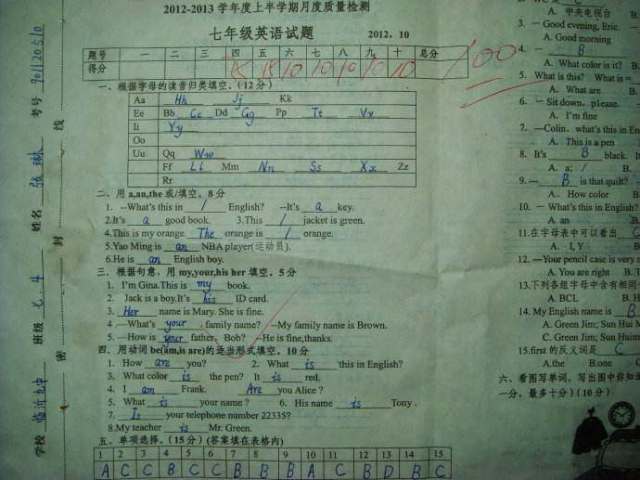 2012-2013学年度上半学期月度质量检测
七年级英语试题 2012．10
题号 一 二 三 四 五 六 七 八 九 十 总分
得分 15 10 10 10 10 10 100
一、根据字母的读音归类填空。(12分)
Aa Hh Jj Kk
Ee Bb Cc Dd Gg Pp Tt Vv
Ii Yy
Oo
Uu Qq Ww
Ff Ll Mm Nn Ss Xx Zz
Rr
二、用a,an,the或/填空。8分
1. --What's this in / English? --It's a key.
2.It's a good book. 3.This / jacket is green.
4.This is my orange. The orange is / orange.
5.Yao Ming is an NBA player(运动员).
6.He is an English boy.
三、根据句意，用my,your,his her填空。5分
1. I'm Gina.This is my book.
2. Jack is a boy.It's his ID card.
3. Her name is Mary. She is fine.
4. —What's your family name? --My family name is Brown.
5. --How is your father, Bob? --He is fine,thanks.
四、用动词be(am,is are)的适当形式填空。10分
1. How are you? 2. What is this in English?
3. What color is the pen? It is red.
4. I am Frank. Are you Alice ?
5. What is your name ? 6. His name is Tony .
7. Is your telephone number 22335?
8.My teacher is Mr. Green.
五、单项选择。(15分)(答案填在表格内)
1 2 3 4 5 6 7 8 9 10 11 12 13 14 15
A C C B C C B B B A C B D B C
学校 班级 七、4 姓名 张琳 考号 701120510
密 封 线
A. 中央电视台
3. — Good evening, Eric. —
A. Good morning
4. — B
A. What color is it? B.
5. What is this? What is =
A. What are B.
6. — Sit down, please.
A. I'm fine
7. —Colin, what's this in En
A. This is a pen
8. It's B black.
A. a; / B.
9. — B is that quilt?
A. How color B
10. — What's this in English?
A. an
11.在字母表中可以看出 C
A. I, Y
12. —Your pencil case is very
A. You are right B.
13.下列各组字母中含有相同
A. BCL B.H
14. My English name is B
A. Green Jim; Sun Hui
C. Green Jim; Sun Hui
15.first 的反义词是 C
A.the B.one C
六、看图写单词，写出图中你知
一分，最多十分）(10分)